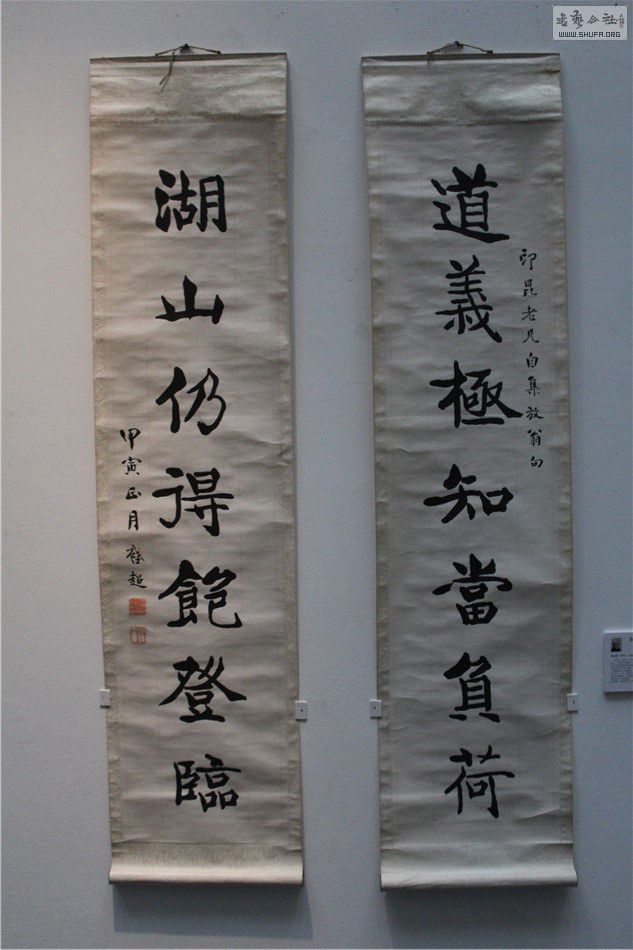 道義極知當負荷
印昆老兄自集放翁句
湖山仍得飽登臨
甲寅正月啓超
WWW.SHUFA.ORG